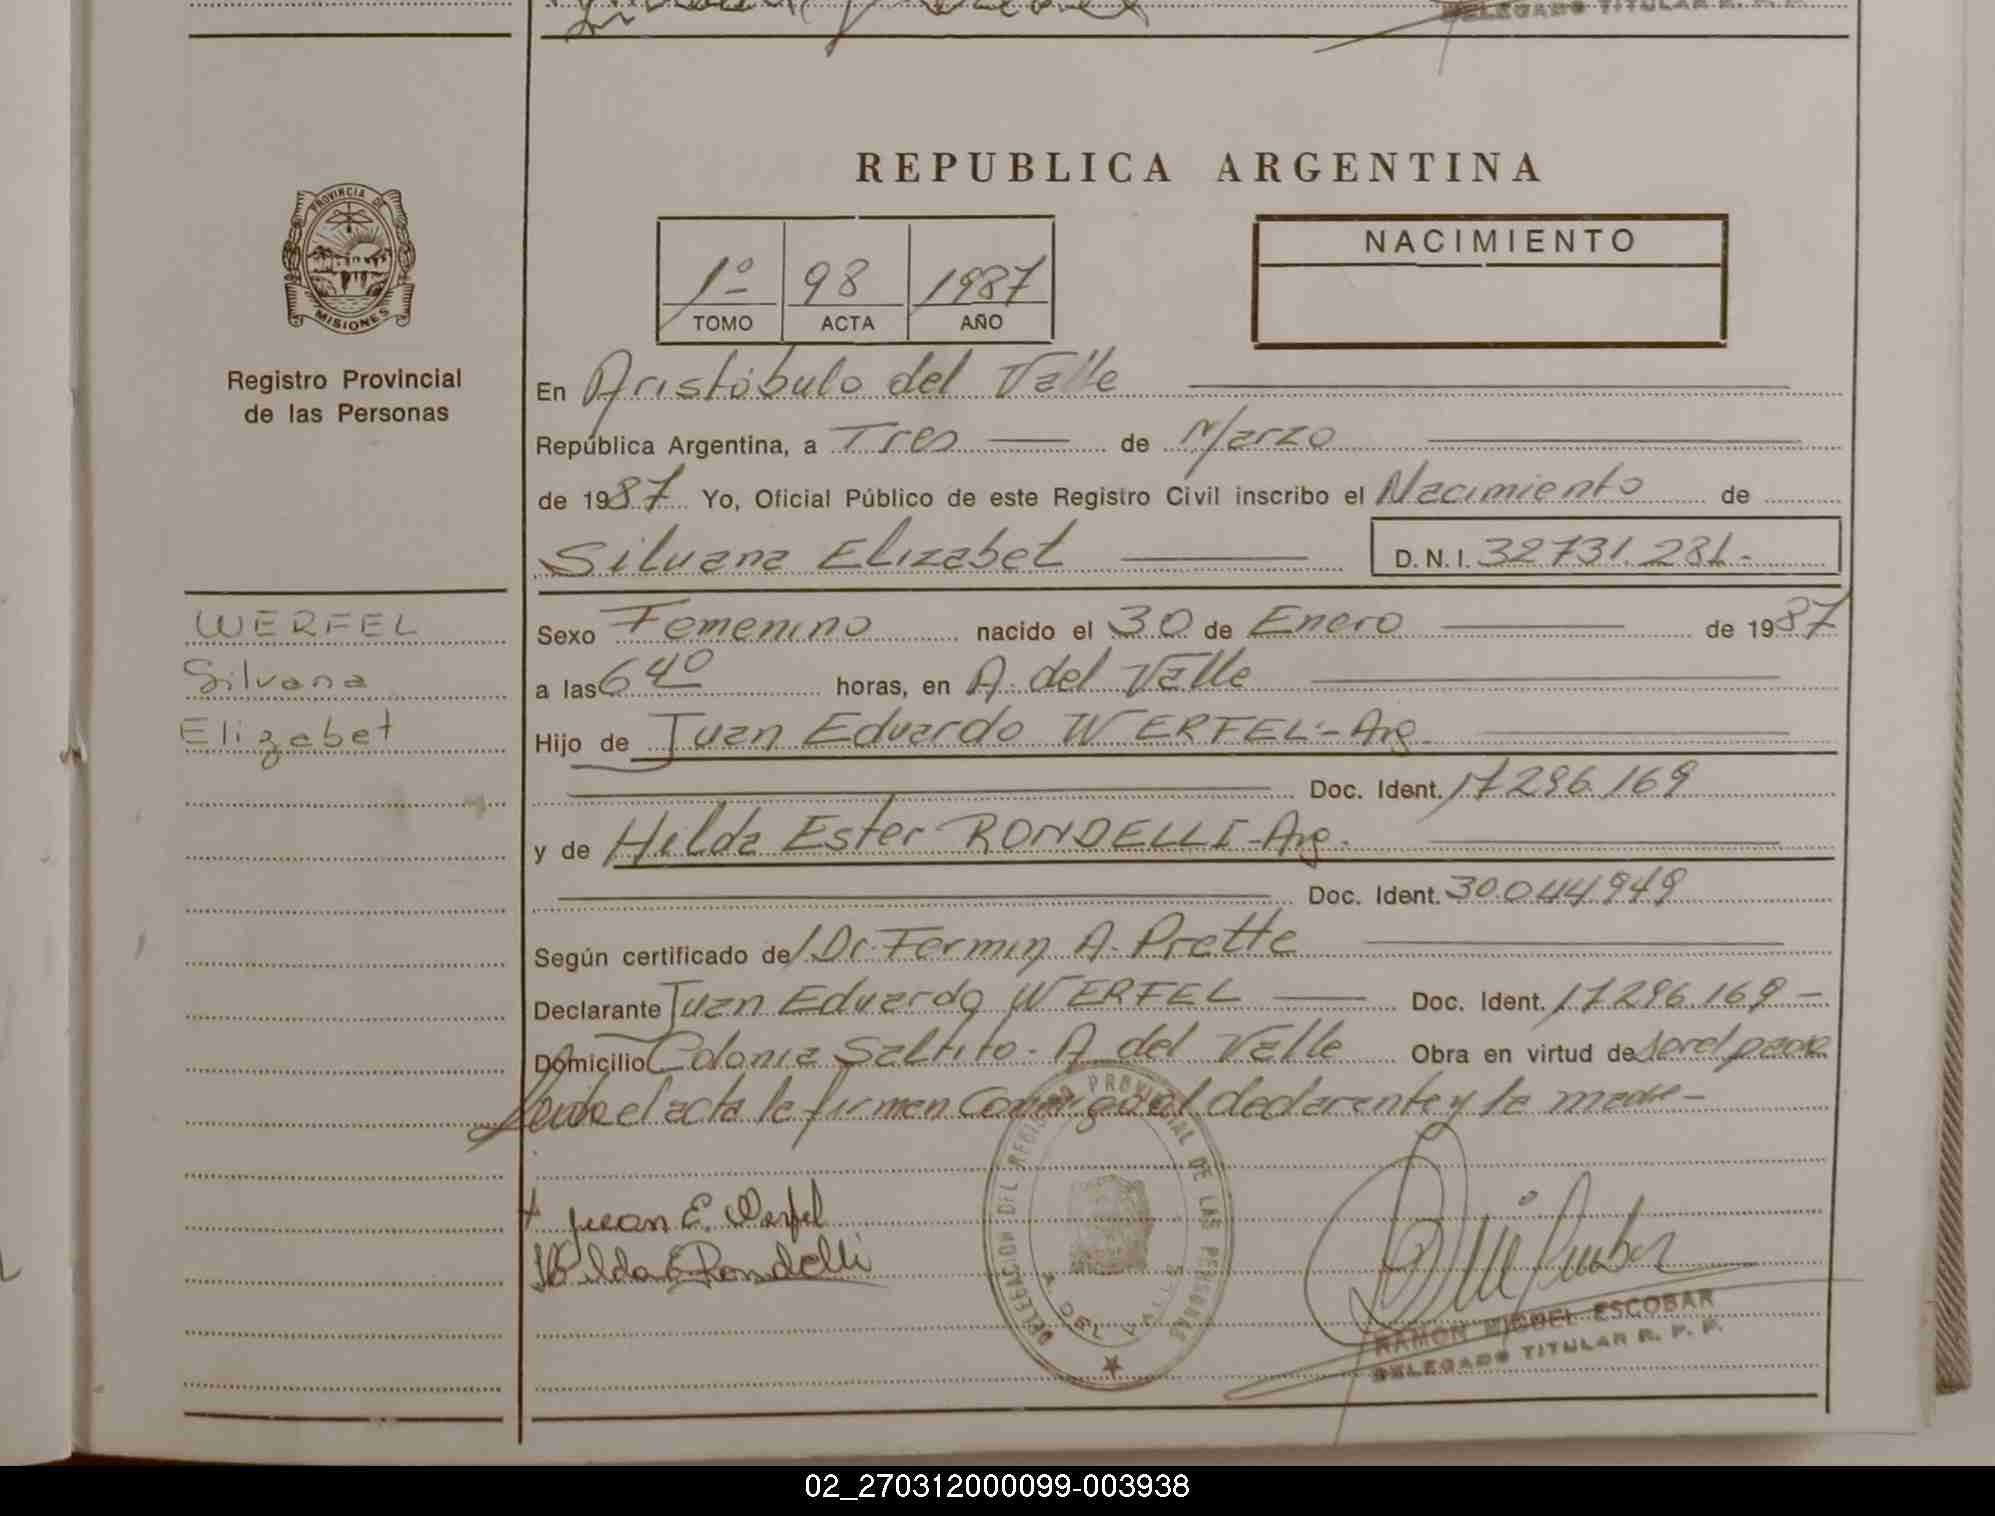 DELEGADO TITULAR R. P. P.
REPUBLICA ARGENTINA
PROVINCIA DE
MISIONES
Registro Provincial
de las Personas
1º 98 1987
TOMO ACTA AÑO
NACIMIENTO
En Aristóbulo del Valle
República Argentina, a Tres de Marzo
de 1987 Yo, Oficial Público de este Registro Civil inscribo el Nacimiento de
Silvana Elizabet D. N. I. 32731.281.-
WERFEL
Silvana
Elizabet
Sexo Femenino nacido el 30 de Enero de 1987
a las 6 40 horas, en A. del Valle
Hijo de Juan Eduardo WERFEL-Arg.
Doc. Ident. 17296.169
y de Hilda Ester RONDELLI-Arg.
Doc. Ident. 30.044949
Según certificado de Dr. Fermin A. Prette
Declarante Juan Eduardo WERFEL Doc. Ident. 17.296.169-
Domicilio Colonia Saltito - A del Valle Obra en virtud de ser el padre
el acta la firman Conmigo el declarante y la madre-
Juan E. Werfel
Hilda E Rondelli
DELEGACION DEL REGISTRO PROVINCIAL DE LAS PERSONAS
A. DEL VALLE
RAMON MIGUEL ESCOBAR
DELEGADO TITULAR R. P. P.
02_270312000099-003938